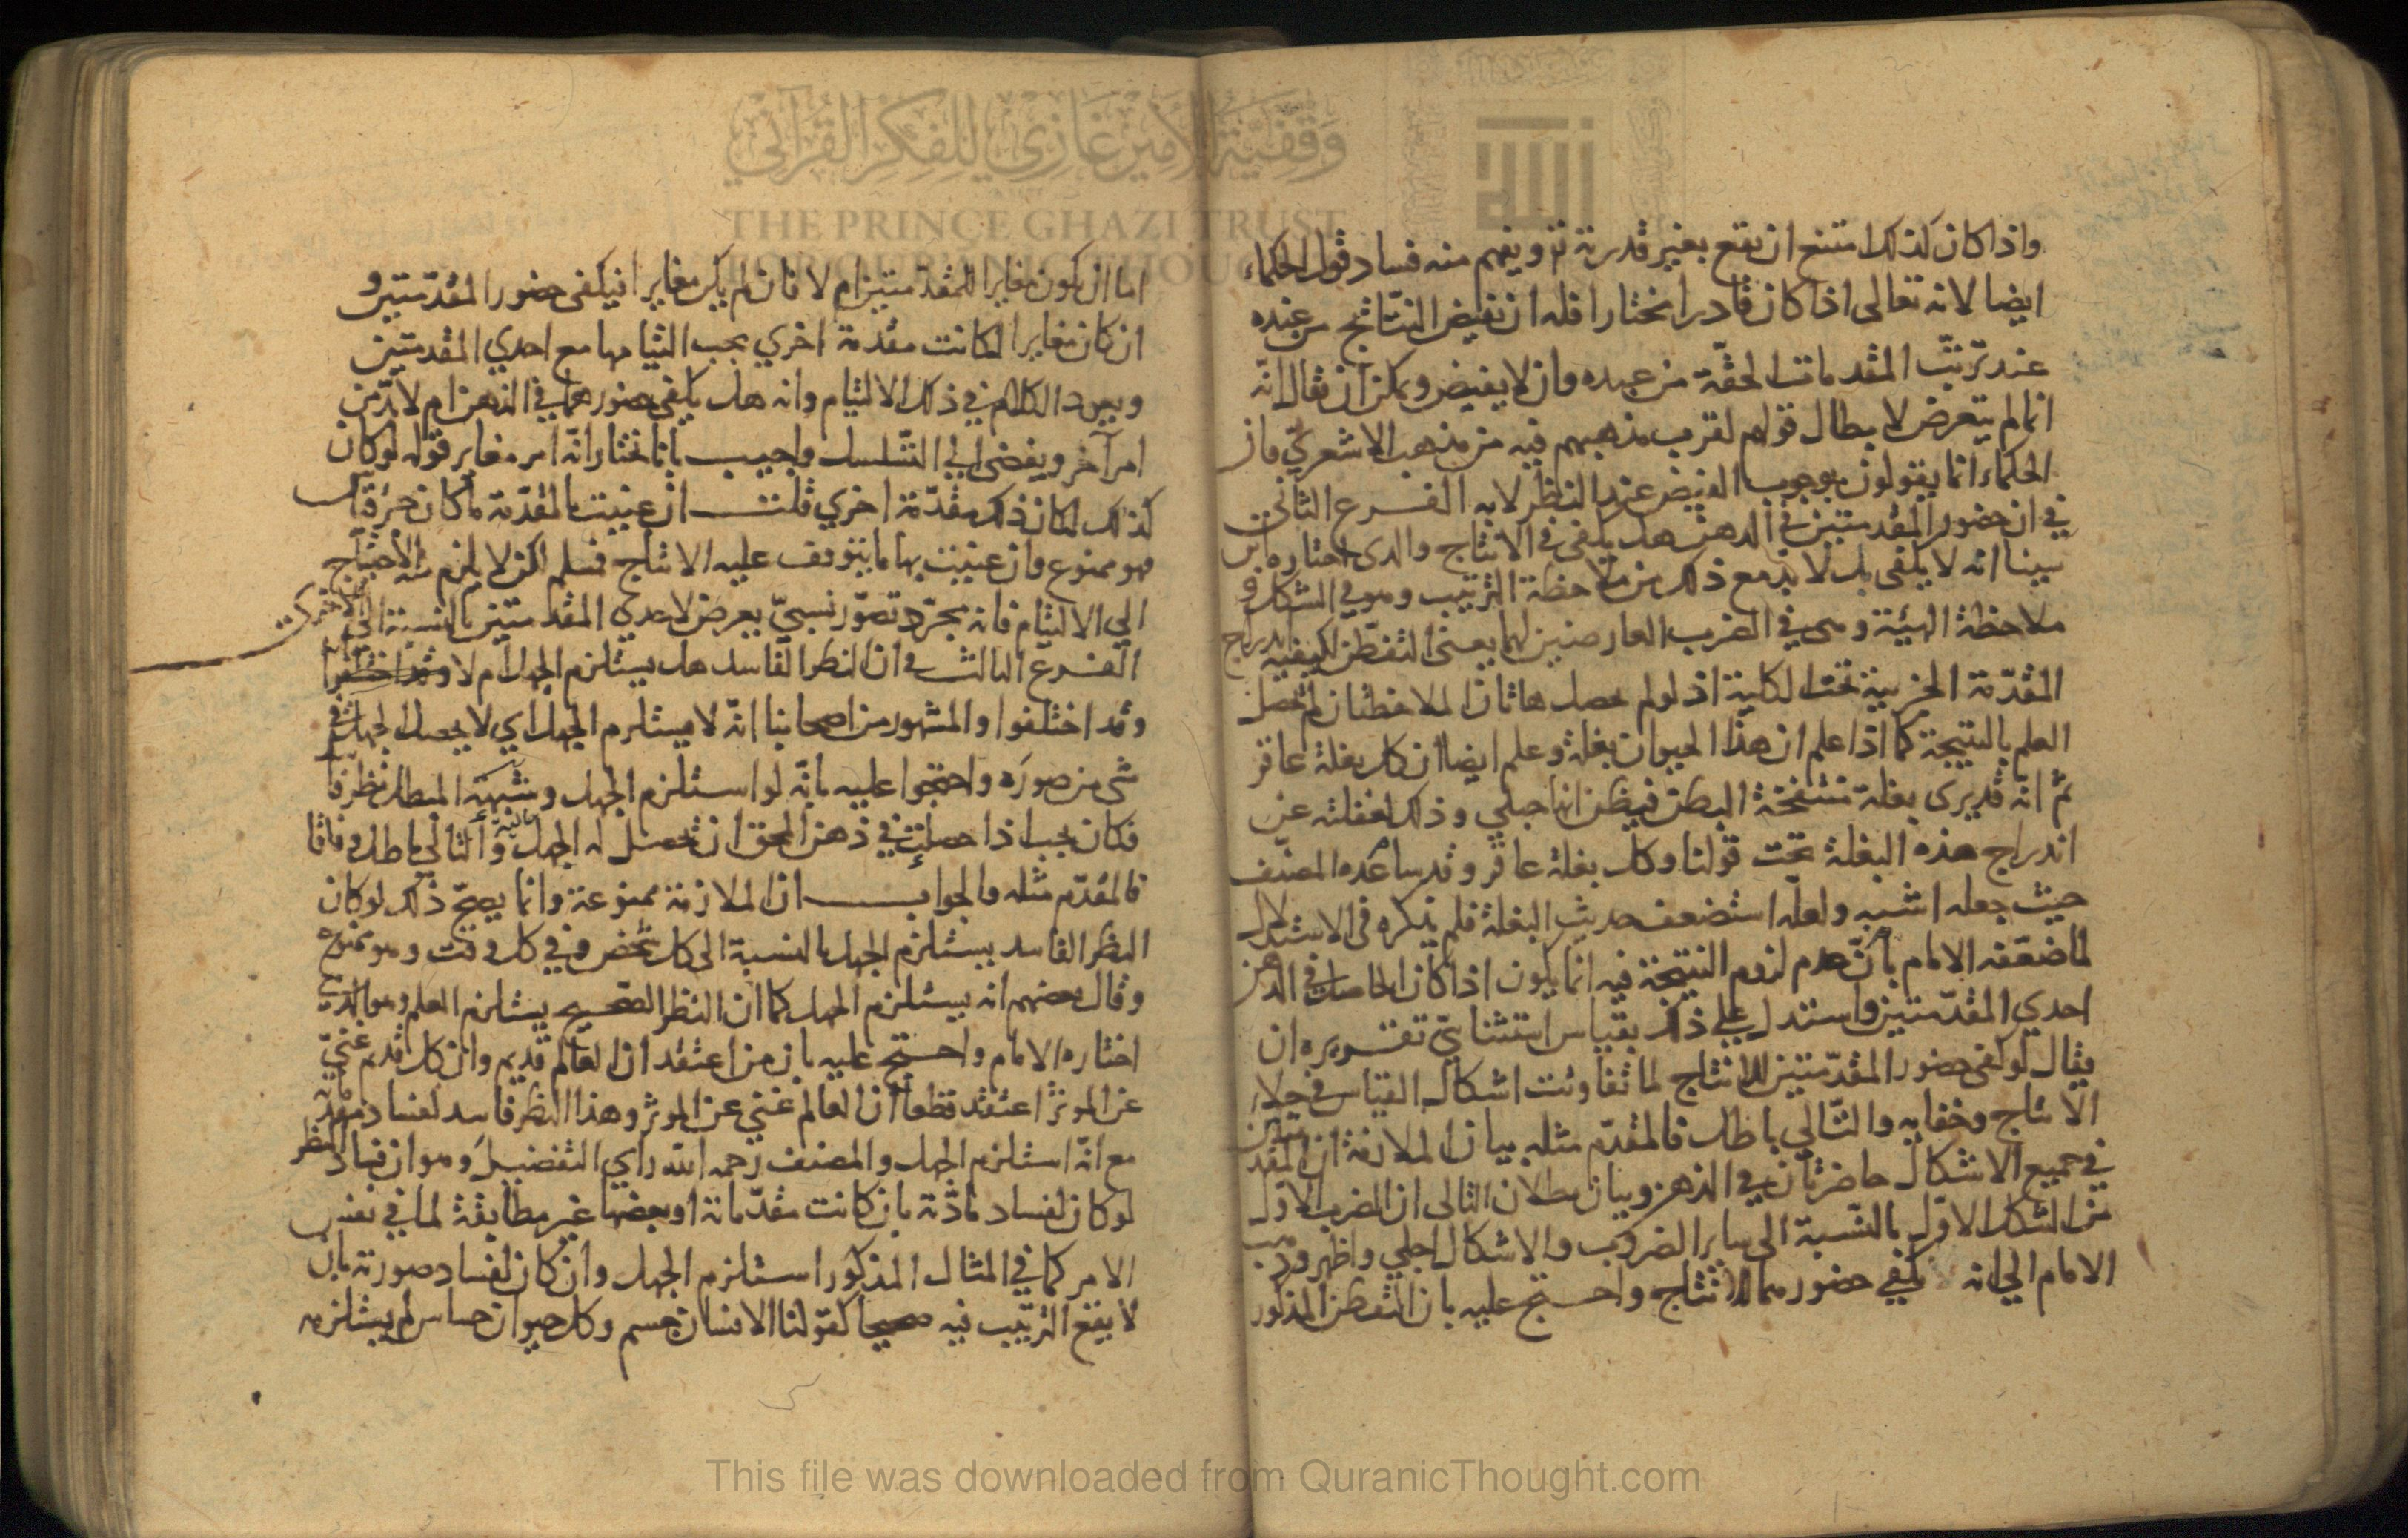 واذا كان كذلك امتنع ان يقع بغير قدرته تع ويفهم منه فساد قول الحكماء
ايضا لانه تعالى اذا كان قادرا مختارا فله ان يفيض النتائج من عنده
عند ترتّب المقدمات الحقّة من عبده وان لا يفيض ويمكن ان يقال انّه
انما لم يتعرض لابطال قولهم لقرب مذهبهم فيه من مذهب الاشعري فان
الحكماء انما يقولون بوجوب الفيض عند النظر لا به الفرع الثاني
في ان حضور المقدمتين في الذهن هل يكفي في الانتاج والذي اختاره ابن
سينا انه لا يكفي بل لا بد مع ذلك من ملاحظة الترتيب وهو في الشكل و
ملاحظة الهيئة وهي في الضرب العارضين لهما يعني التفطّن لكيفية اندراج
المقدّمة الجزئية تحت الكلية اذ لو لم يحصل هاتان الملاحظتان لم يحصل
العلم بالنتيجة كما اذا علم ان هذا الحيوان بغلة وعلم ايضا ان كل بغلة عاقر
ثم انّه قد يرى بغلة منتفخة البطن فيظن انها حبلي وذلك لغفلته عن
اندراج هذه البغلة تحت قولنا وكل بغلة عاقر وقد ساعده المصنّف
حيث جعله اشبه ولعلّه استضعف حديث البغلة فلم يذكره في الاستدلال
لما ضعّفه الامام بانّ عدم لزوم النتيجة فيه انما يكون اذا كان الحاصل في الذهن
احدي المقدّمتين واستدل علي ذلك بقياس استثنائي تقريره ان
يقال لو كفى حضور المقدّمتين للانتاج لما تفاوتت اشكال القياس في جلاء
الانتاج وخفايه والتّالي باطل فالمقدّم مثله بيان الملازمة ان المقدمتين
في جميع الاشكال حاضرتان في الذهن وبيان بطلان التالي ان الضرب الاول
من الشكل الاوّل بالنّسبة الى ساير الضروب والاشكال اجلي واظهر وذهب
الامام الي انه يكفي حضورهما للانتاج واحتج عليه بان التفطن المذكور
اما ان يكون مغايرا للمقدمتين ام لا فان لم يكن مغايرا فيكفي حضور المقدّمتين و
ان كان مغايرا لكانت مقدمة اخري يجب التيامها مع احدي المقدمتين
ويعود الكلام في ذلك الالتيام وانه هل يكفي حضورهما في الذهن ام لا بدّ من
امر آخر ويفضي الي التّسلسل واجيب بانا نختار انّه امر مغاير قوله لو كان
كذلك لكان ذلك مقدّمة اخري قلت ان عنيت بالمقدّمة ما كان جزء قياس
فهو ممنوع وان عنيت بها ما يتوقف عليه الانتاج فسلم لكن لا يلزم منه الاحتياج
الي الالتيام فانه مجرّد تصوّر نسبيّ يعرض لاحدي المقدمتين بالنسبة الي الاخرى
الفرع الثالث في ان النظر الفاسد هل يستلزم الجهل ام لا
وقد اختلفوا والمشهور من اصحابنا انّه لا يستلزم الجهل اي لا يحصل الجهل في
شي من صوره واحتجوا عليه بانّه لو استلزم الجهل وشبهة المبطل نظر فا
فكان يجب اذا حصلت في ذهن المحق ان تحصل له الجهل والتالي باطل وفاقا
فالمقدّم مثله والجواب ان الملازمة ممنوعة وانما يصحّ ذلك لو كان
النظر الفاسد يستلزم الجهل بالنسبة الى كل شخص وفي كل وقت وهو ممنوع
وقال بعضهم انه يستلزم الجهل كما ان النظر الصحيح يستلزم العلم وهو الذي
اختاره الامام واحتج عليه بان من اعتقد ان العالم قديم وان كل قديم غنيّ
عن المؤثر اعتقد قطعا ان العالم غني عن المؤثر وهذا النظر فاسد لفساد
مع انّه استلزم الجهل والمصنف رحمه الله راي التفضيل وهو ان فساد النظر
لو كان لفساد مادّته بان كانت مقدّماته او بعضها غير مطابقة لما في نفس
الامر كما في المثال المذكور استلزم الجهل وان كان لفساد صورته بان
لا يقع الترتيب فيه صحيحا كقولنا الانسان جسم وكل حيوان حساس لم يستلزمه
وقفية الأمير غازي للفكر القرآني
THE PRINCE GHAZI TRUST
FOR QURANIC THOUGHT
This file was downloaded from QuranicThought.com